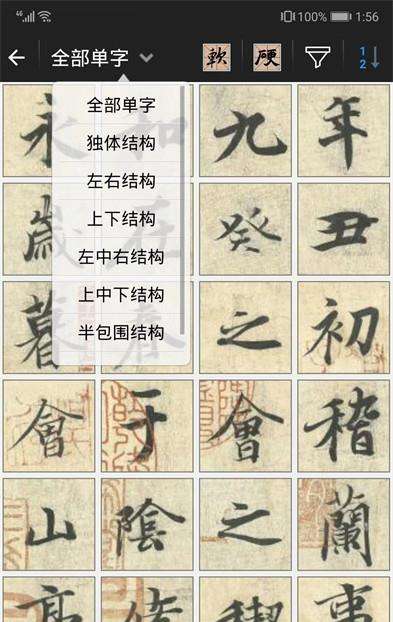 4G 100% 1:56
全部单字 軟 硬 1 2
全部单字
独体结构
左右结构
上下结构
左中右结构
上中下结构
半包围结构
永 和 九 年
歲 在 癸 丑
暮 春 之 初
會 于 會 稽
山 陰 之 蘭
亭 脩 禊 事